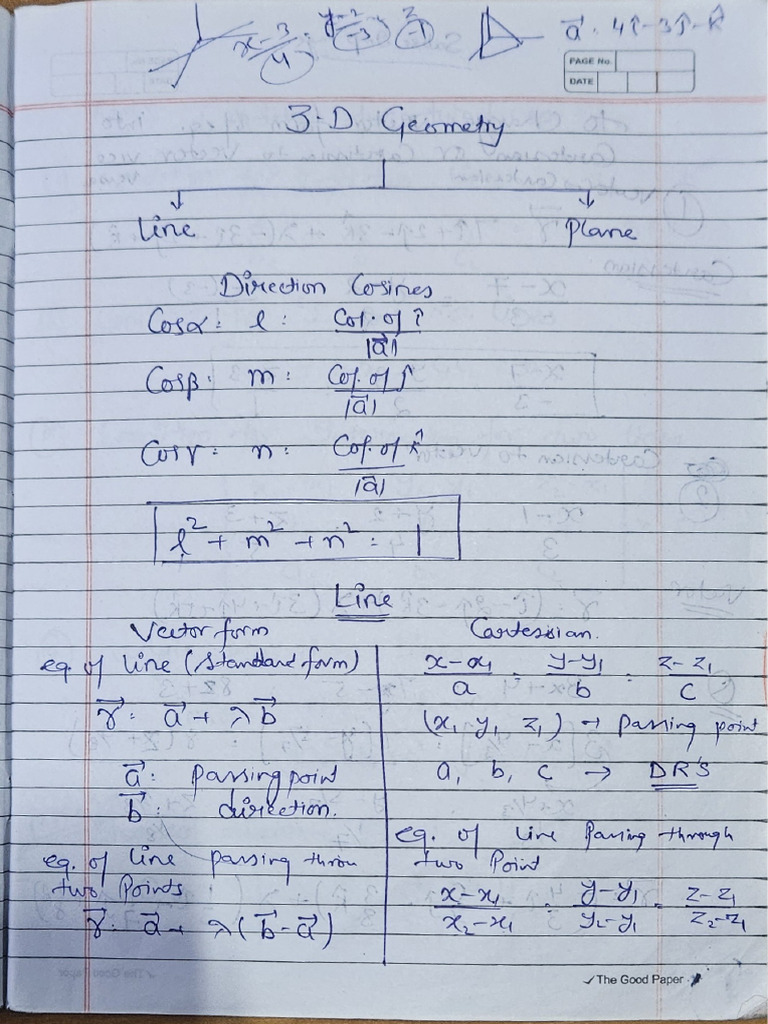 x-3/4 = y-2/-3 = z/-1 a⃗ = 4î-3ĵ-k̂
PAGE No.
DATE
3-D Geometry
Line Plane
Direction Cosines
Cosα = l = Cof. of î/|a⃗|
Cosβ = m = Cof. of ĵ/|a⃗|
Cosγ = n = Cof. of k̂/|a⃗|
l² + m² + n² = 1
Line
Vector form
eq. of line (Standard form)
r⃗ = a⃗ + λb⃗
a⃗ = passing point
b⃗ = direction.
eq. of line passing throu
two Points
r⃗ = a⃗ + λ(b⃗-a⃗)
Cartessian.
x-x₁/a = y-y₁/b = z-z₁/c
(x₁, y₁, z₁) → passing point
a, b, c → DR'S
eq. of line Passing through
two Point
x-x₁/x₂-x₁ = y-y₁/y₂-y₁ = z-z₁/z₂-z₁
The Good Paper